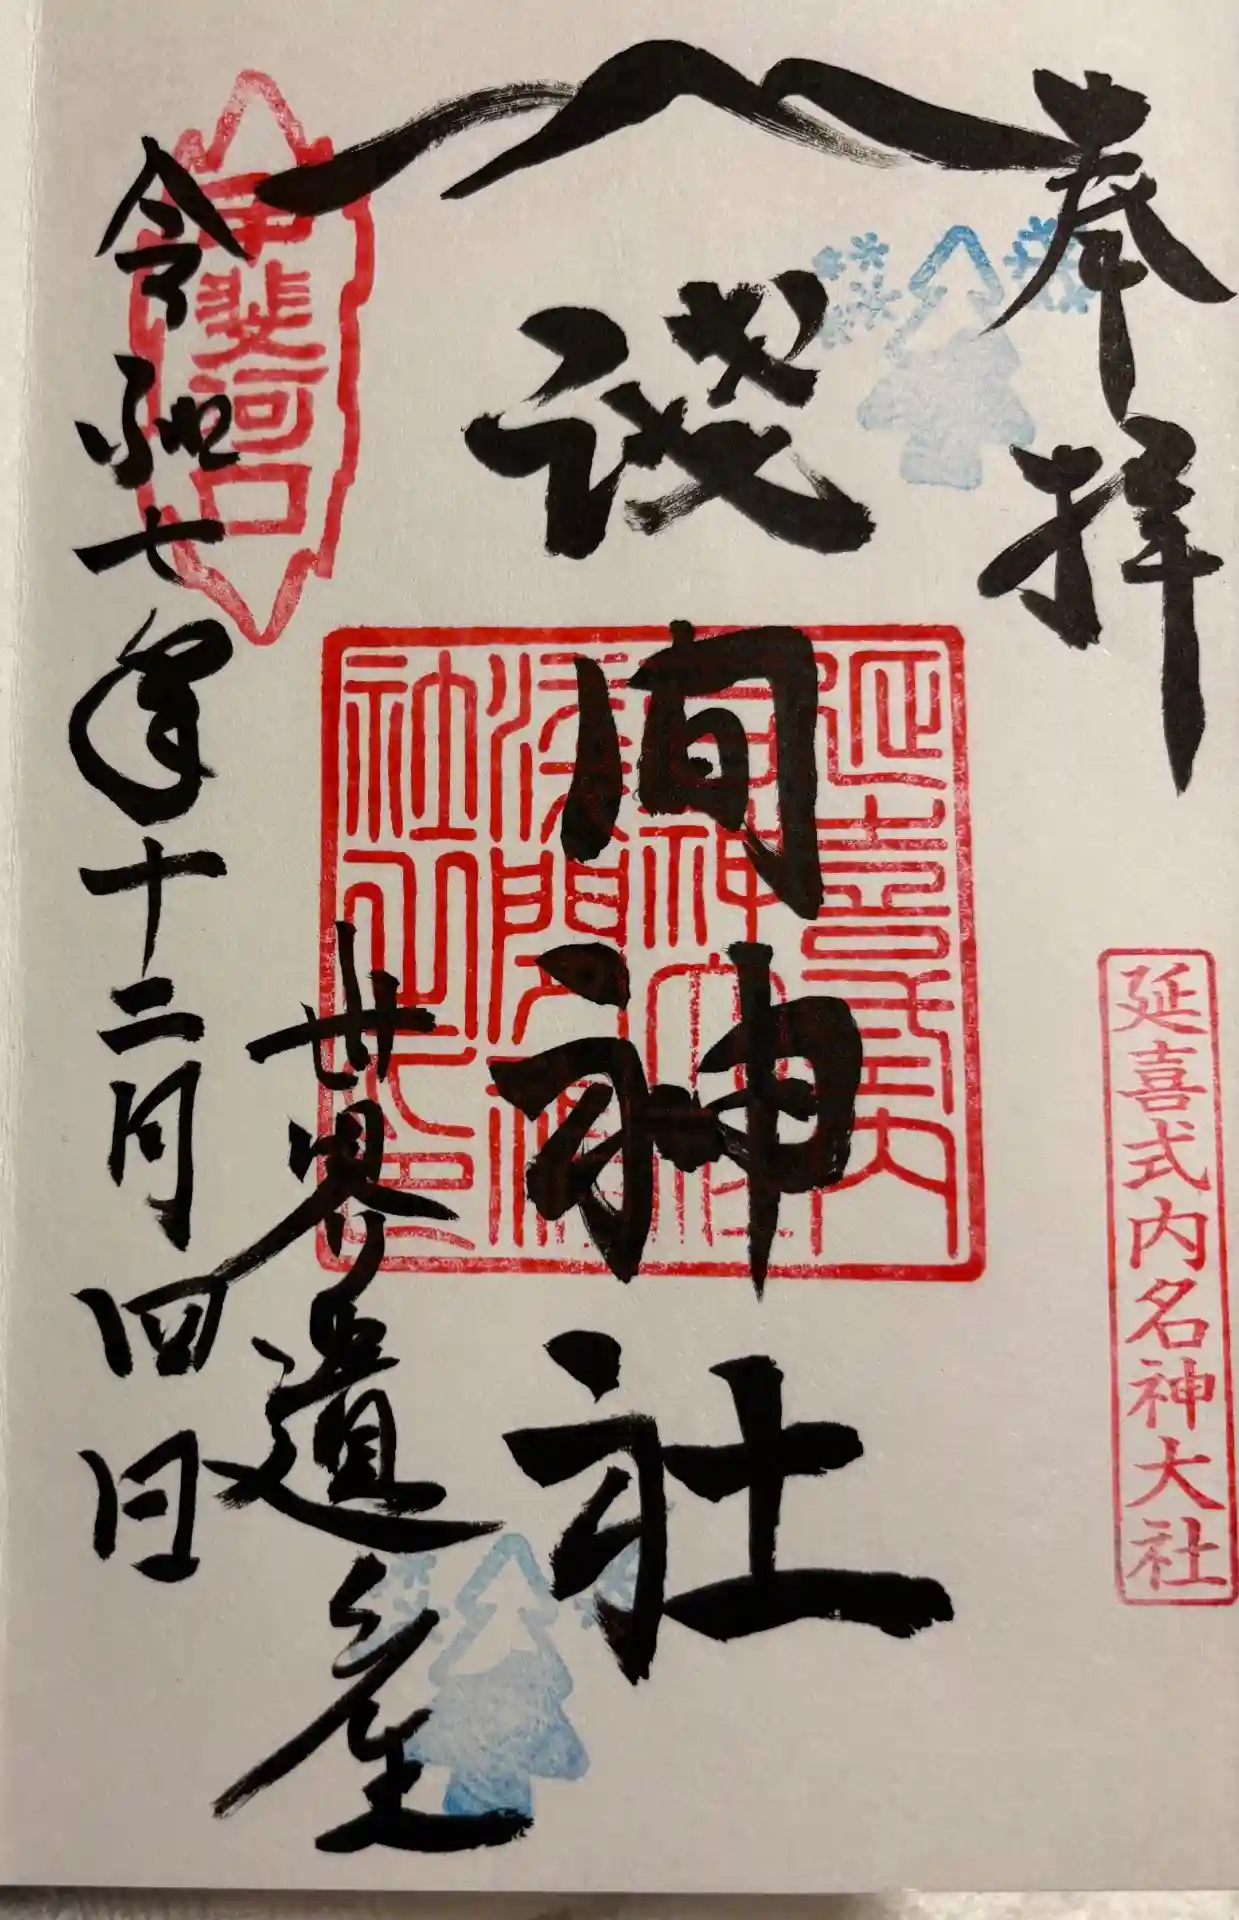 奉拝
延喜式内名神大社
淺間神社
延喜式内
名神大社
淺間神
社之印
世界遺産
甲斐河口
令和七年十二月四日